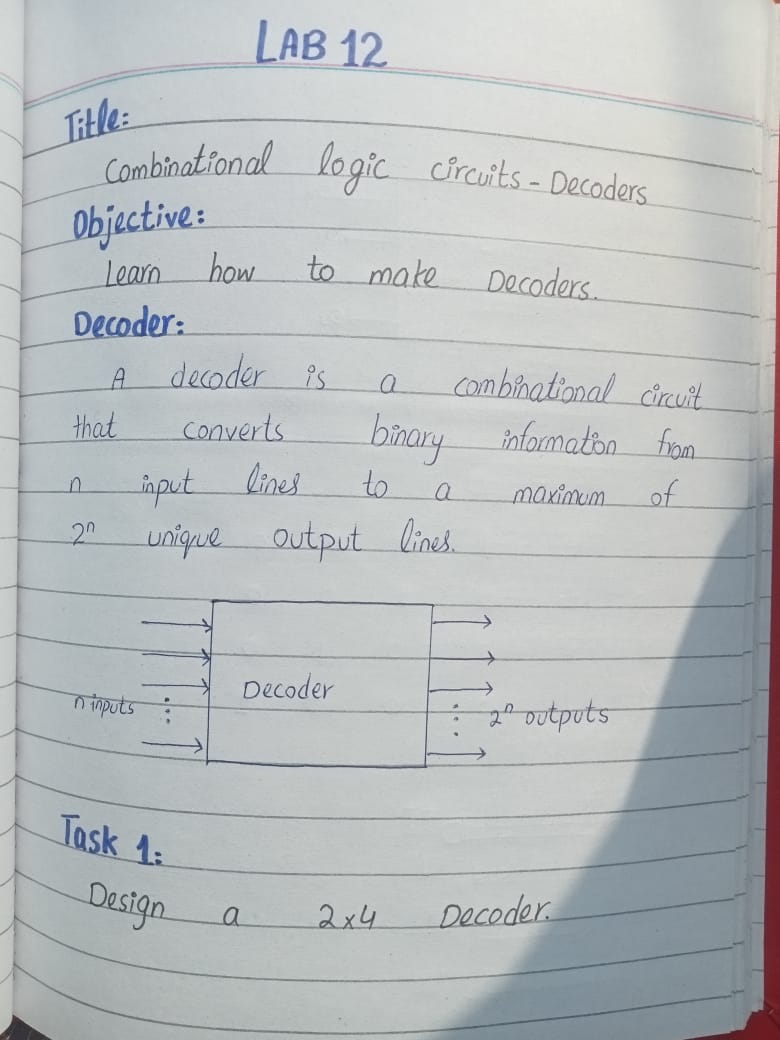 LAB 12
Title:
Combinational logic circuits - Decoders
Objective:
Learn how to make Decoders.
Decoder:
A decoder is a combinational circuit
that converts binary information from
n input lines to a maximum of
2ⁿ unique output lines.
Decoder
n inputs
2ⁿ outputs
Task 1:
Design a 2x4 Decoder.